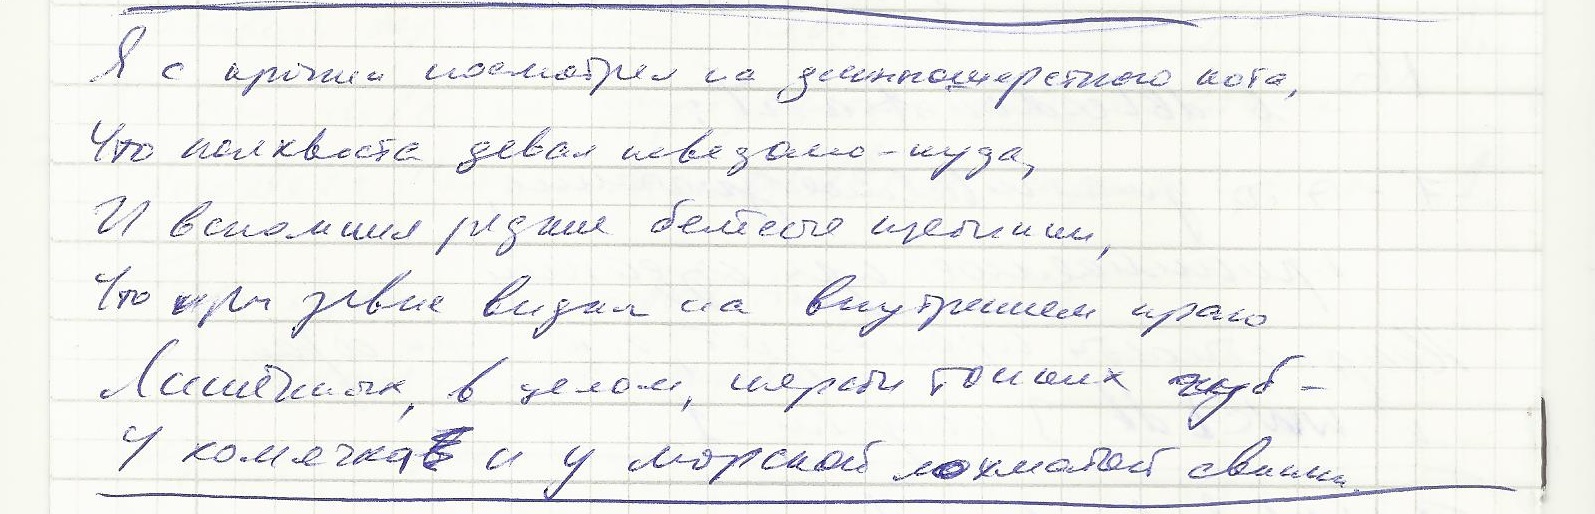 Я с крыши посмотрел на длинношерстного кота,
Что полхвоста девал неведомо-куда,
И вспомнил редкие белесые щетинки,
Что при зевке видал на внутреннем краю
Лишённых, в целом, шерсти тонких губ -
У хомячка и у морской лохматой свинки.